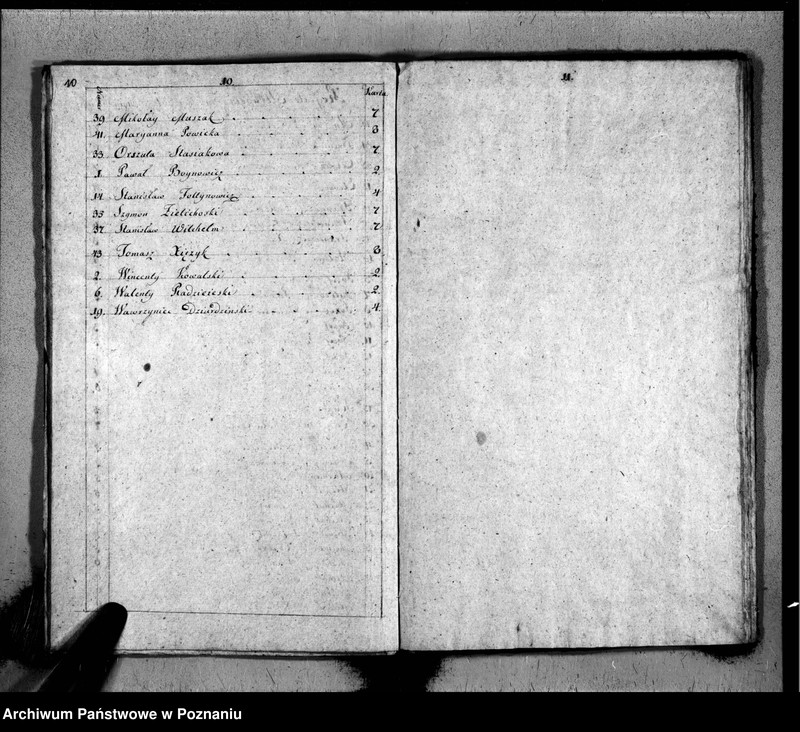 10 10 11.
Numer Karta
39 Mikołay Muszak 7
41. Maryanna Powicka 3
33 Orszula Stasiakowa 7
1 Paweł Boynowicz 2
14 Stanisław Foltynowicz 4
35 Szymon Zielichoski 7
37 Stanisław Wilchelm 7
43 Tomasz Xiężyk 3
2. Wincenty Kowalski 2
6. Walenty Radzieieski 2
19. Wawrzyniec Dziardzinski 4
Archiwum Państwowe w Poznaniu